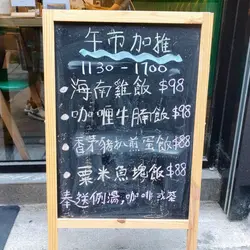 午市加推
1130 - 1700
• 海南雞飯 $98
• 咖喱牛腩飯 $98
• 香茅豬扒煎蛋飯 $88
• 粟米魚塊飯 $88
奉送例湯,咖啡或茶